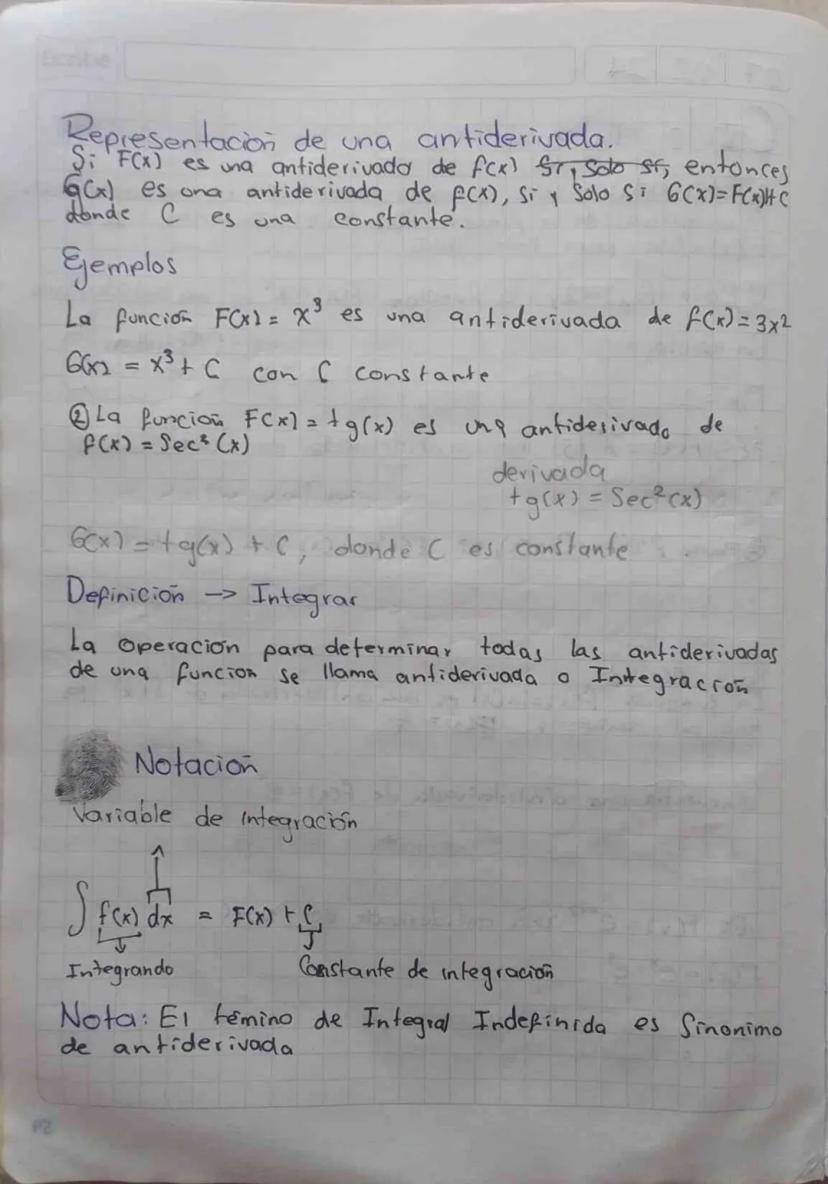 Scribe
Representación de una antiderivada.
Si F(x) es una antiderivado de f(x) si y solo si, entonces
G(x) es una antiderivada de f(x), Si y Solo Si G(x)=F(x)+C
donde C es una constante.
Ejemplos
La función F(x) = x³ es una antiderivada de f(x)=3x²
G(x) = x³ + C con C constante
② La función F(x) = tg(x) es una antiderivado de
f(x) = Sec²(x)
derivada
tg(x) = Sec²(x)
G(x) = tg(x) + C, donde C es constante
Definición -> Integrar
La operación para determinar todas las antiderivadas
de una función se llama antiderivada o Integración
Notación
Variable de integración
∫ f(x) dx = F(x) + C
Integrando Constante de integración
Nota: El témino de Integral Indefinida es Sinonimo
de antiderivada